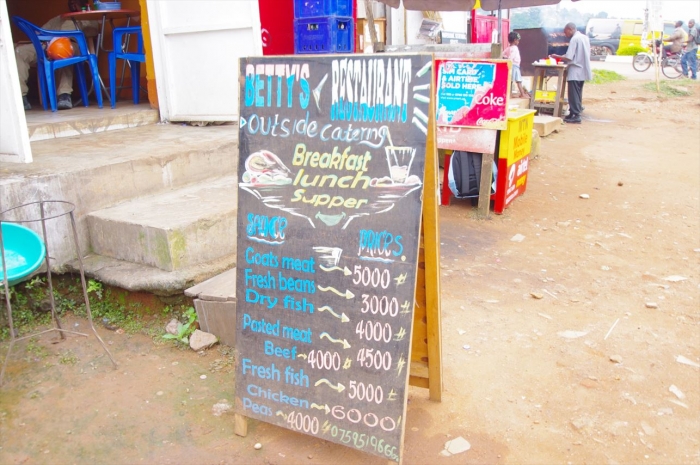 BETTY'S RESTAURANT
Outside catering
Breakfast
lunch
Supper
PRICES
Goats meat 5000
Fresh beans 3000
Dry fish 4000
Pasted meat 4500
Beef 4000
Fresh fish 5000
Chicken 6000
Peas 4000
SIM CARD
& AIRTIME
SOLD HERE
Coke